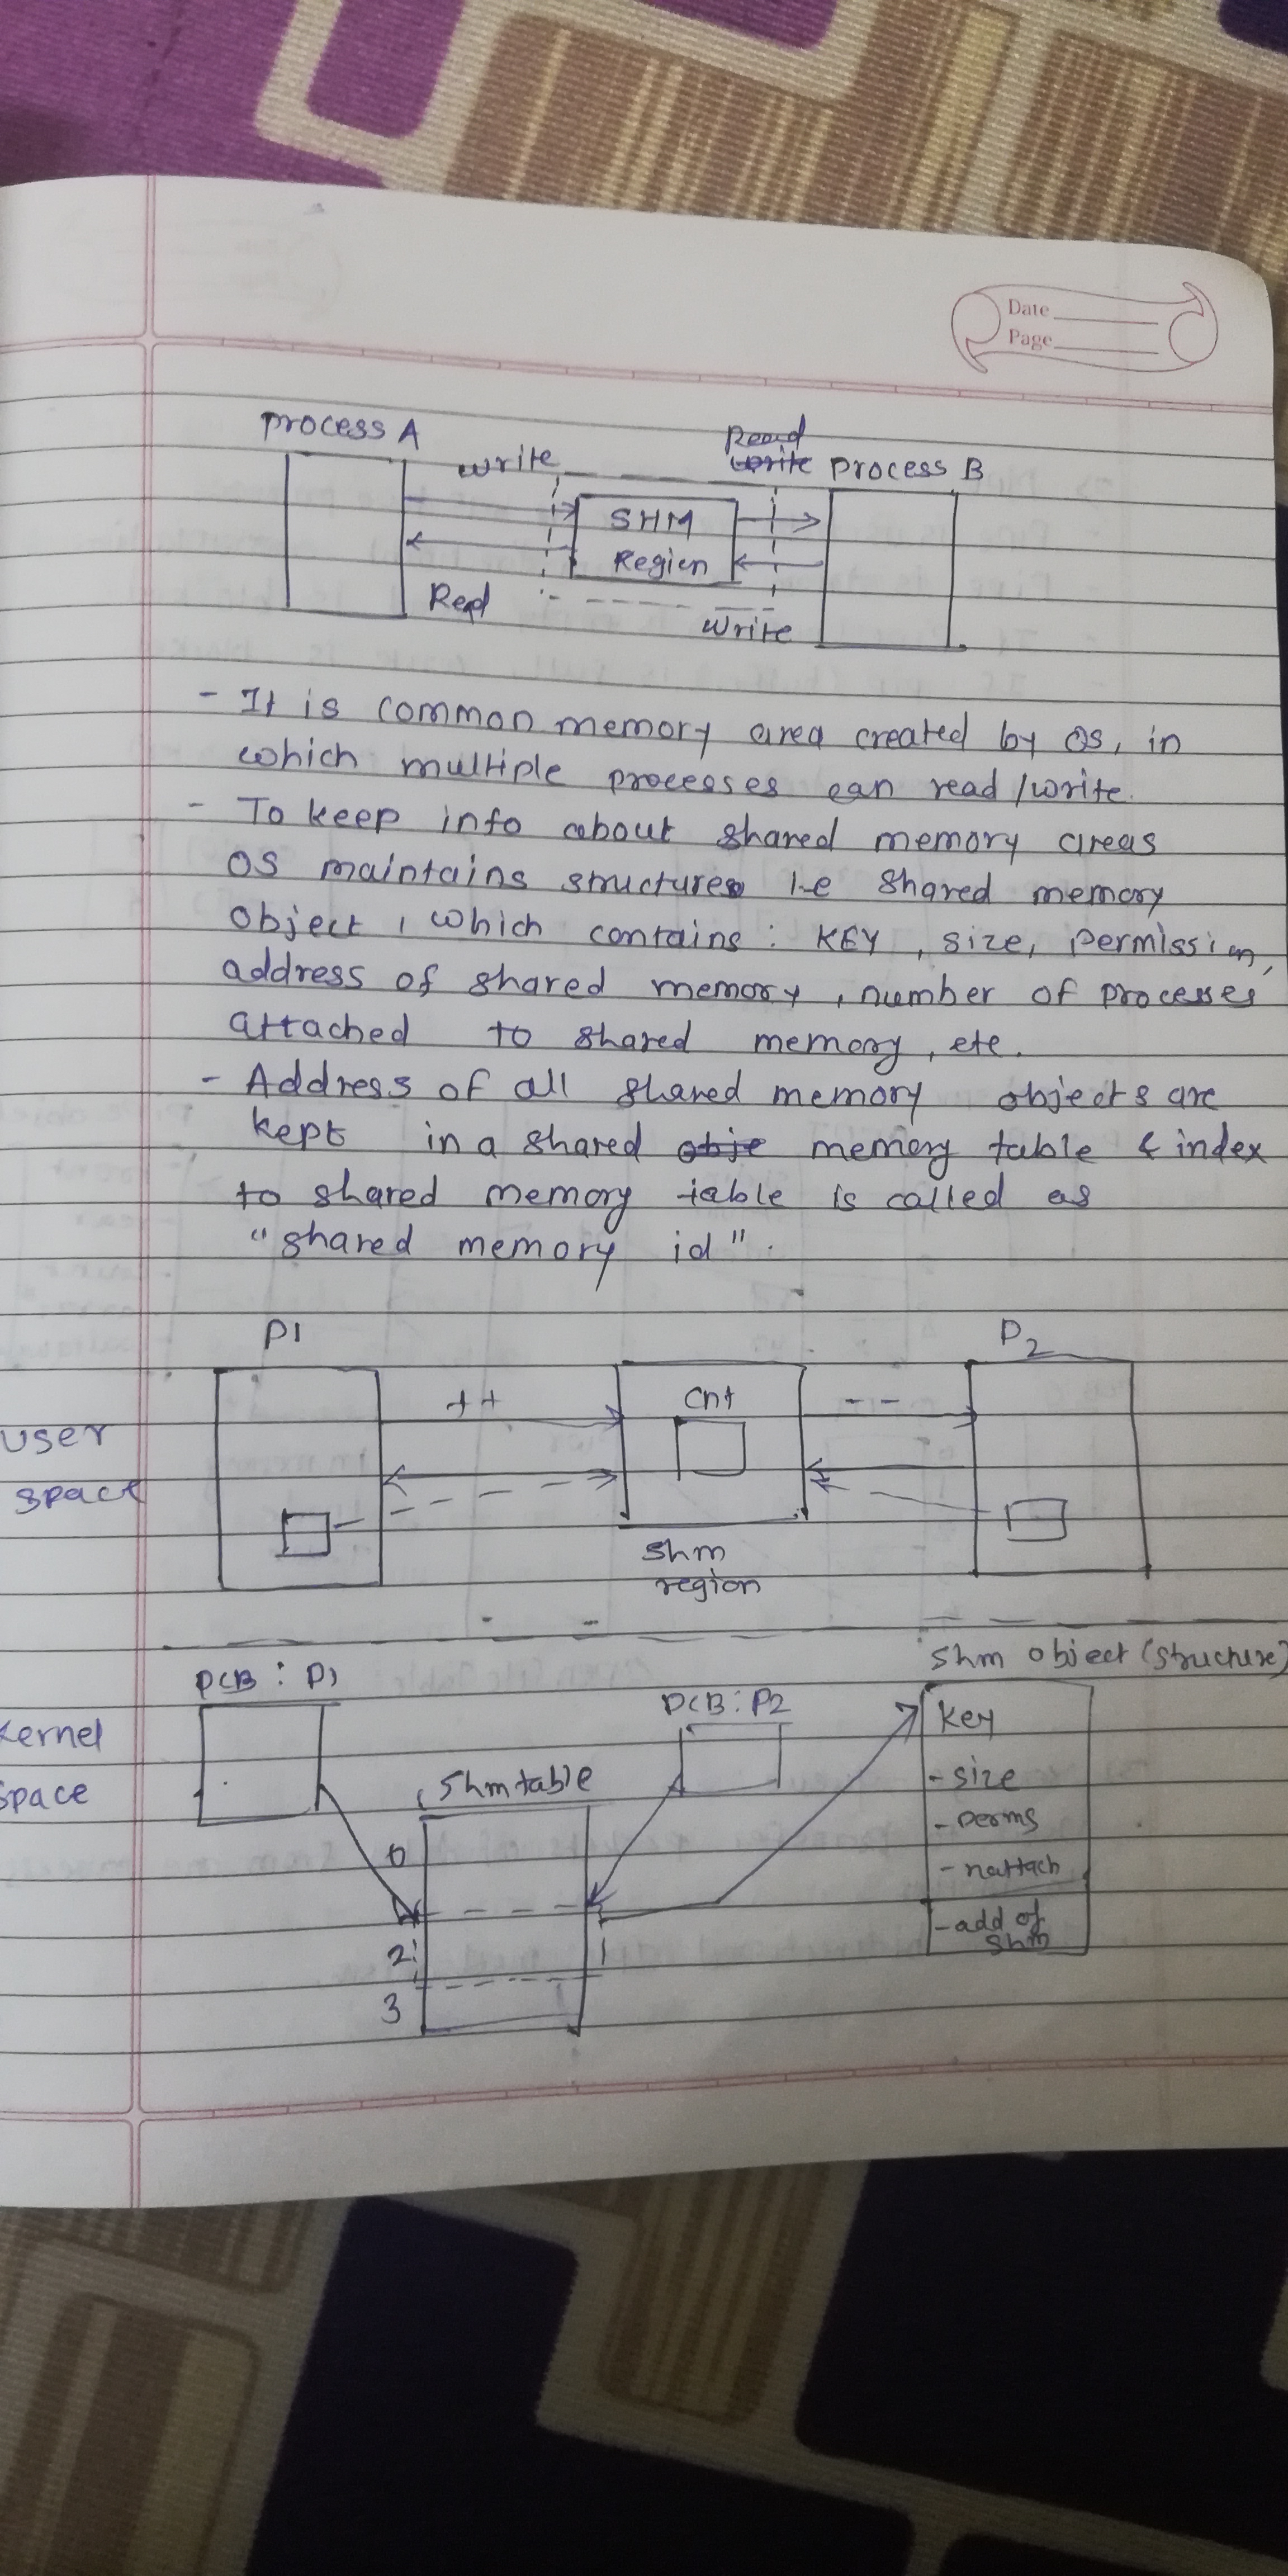 Date
Page
process A
write
Read
write process B
SHM
Region
Read
write
- It is common memory area created by OS, in
which multiple processes can read/write.
- To keep info about shared memory areas
OS maintains structures i.e shared memory
object, which contains: KEY, size, permission,
address of shared memory, number of processes
attached to shared memory, etc.
- Address of all shared memory objects are
kept in a shared obje memory table & index
to shared memory table is called as
"shared memory id".
P1
P2
++
cnt
--
user
space
shm
region
shm object (structure)
PCB : P1
PCB : P2
Kernel
space
key
shmtable
- size
- perms
0
- nattach
- add of
shm
2
1
3